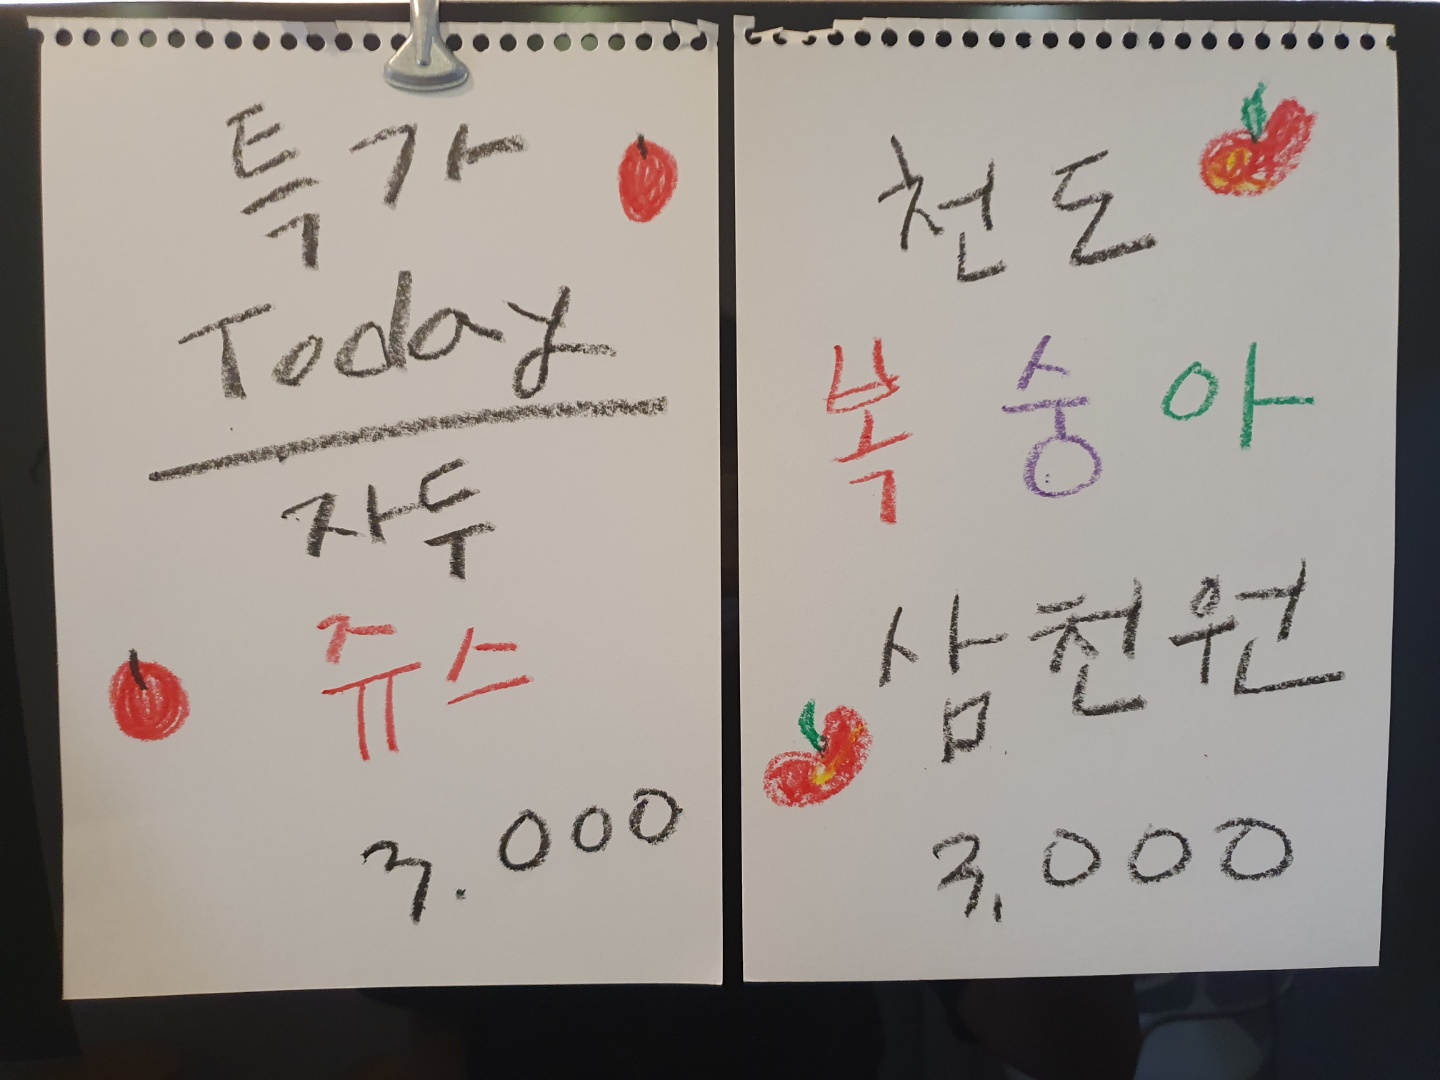 특가
Today
자두
쥬스
3.000
천도
복숭아
삼천원
3,000